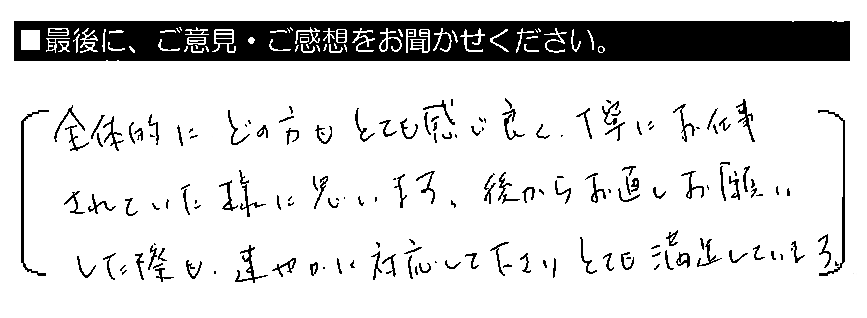 ■最後に、ご意見・ご感想をお聞かせください。
全体的にどの方もとても感じ良く、丁寧にお仕事
されていた様に思います。後からお直しお願い
した際も、速やかに対応して下さりとても満足しています。